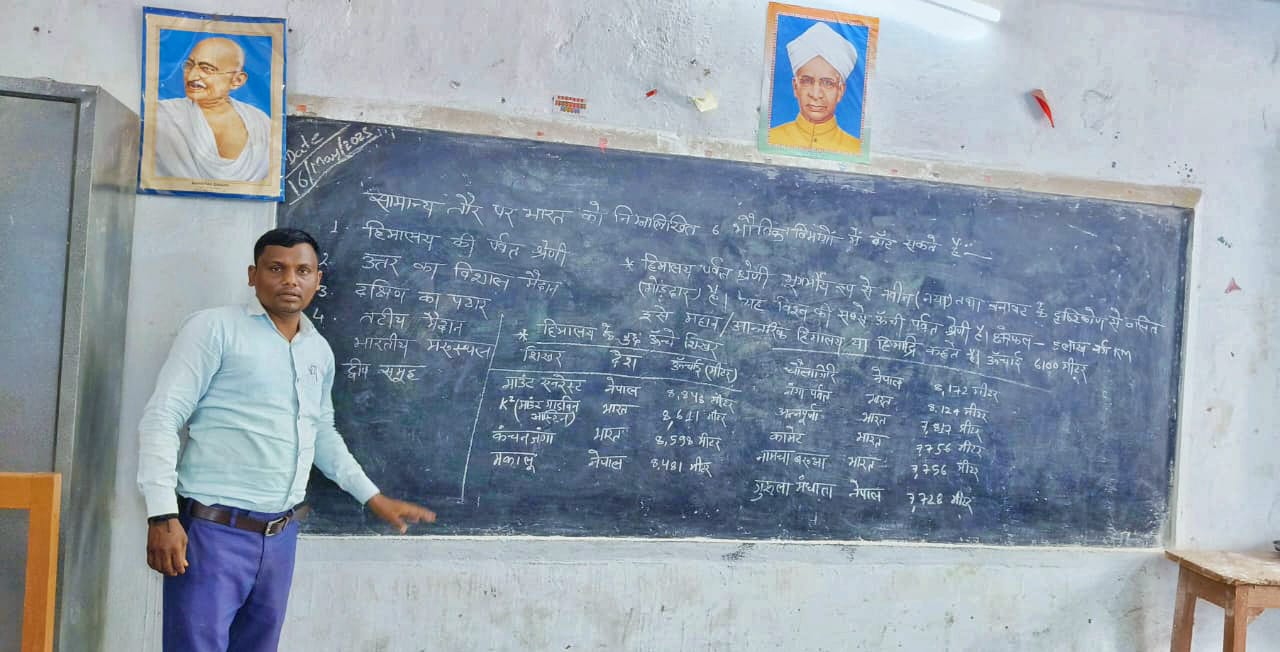 Date
16/May/2025
सामान्य तौर पर भारत को निम्नलिखित 6 भौतिक विभागों में बाँट सकते है:-
1. हिमालय की पर्वत श्रेणी
2. उत्तर का विशाल मैदान
3. दक्षिण का पठार
4. तटीय मैदान
भारतीय मरुस्थल
द्वीप समूह
* हिमालय पर्वत श्रेणी भूगर्भीय रूप से नवीन (नया) तथा बनावट के दृष्टिकोण से वलित
(मोड़दार) है। यह विश्व की सबसे ऊँची पर्वत श्रेणी है। क्षेत्रफल - 5 लाख वर्ग KM
इसे महान/आन्तरिक हिमालय या हिमाद्रि कहते है। ऊँचाई 6100 मीटर
* हिमालय के कुछ ऊँचे शिखर
शिखर देश ऊँचाई (मीटर)
माउंट एवरेस्ट नेपाल 8,848 मीटर
K² (माउंट गाडविन आस्टिन) भारत 8,611 मीटर
कंचनजंगा भारत 8,598 मीटर
मकालू नेपाल 8,481 मीटर
धौलागिरि नेपाल 8,172 मीटर
नंगा पर्वत भारत 8,124 मीटर
अन्नपूर्णा भारत 7,817 मीटर
कामेट भारत 7,756 मीटर
नामचा बरुआ भारत 7,756 मीटर
गुरुला मंधाता नेपाल 7,728 मीटर